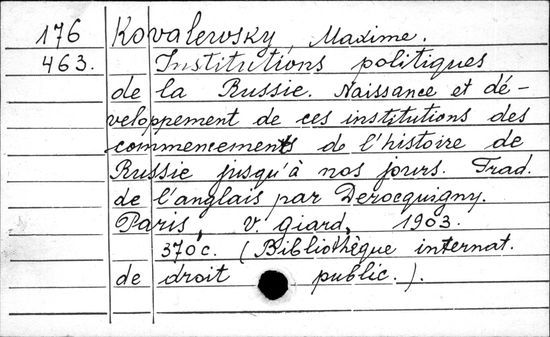 176 Kovalewsky, Maxime.
463. Institutions politiques
de la Russie. Naissance et dé-
veloppement de ces institutions des
commencements de l'histoire de
Russie jusqu'à nos jours. Trad.
de l'anglais par Derocquigny.
Paris, V. Giard, 1903.
370 c. (Bibliothèque internat.
de droit public.).